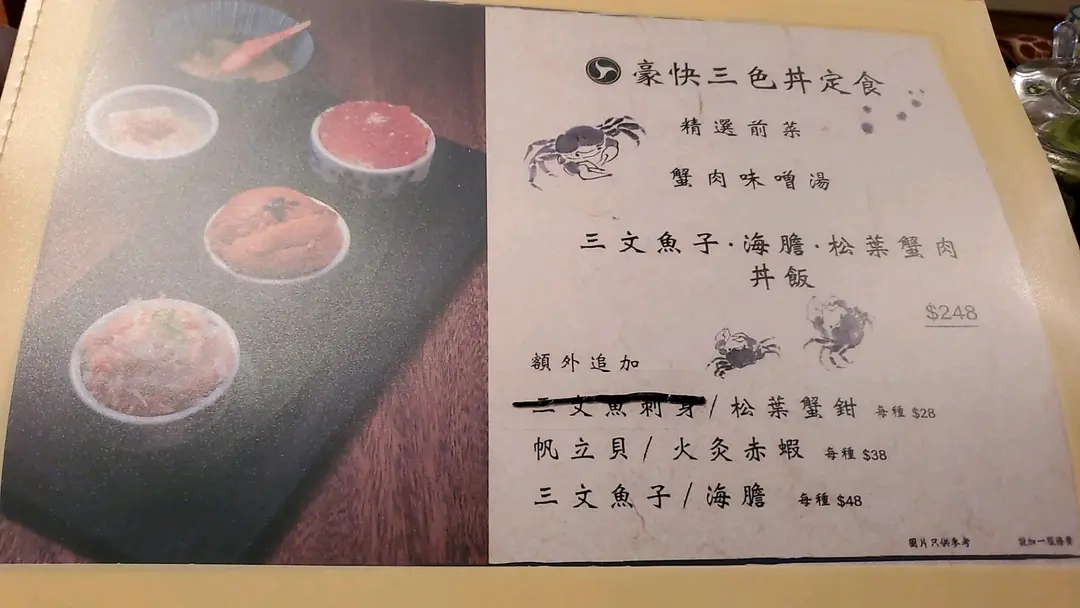 豪快三色丼定食
精選前菜
蟹肉味噌湯
三文魚子·海膽·松葉蟹肉
丼飯
$248
額外追加
三文魚刺身/松葉蟹鉗 每種 $28
帆立貝/火灸赤蝦 每種 $38
三文魚子/海膽 每種 $48
圖片只供參考
設加一服務費